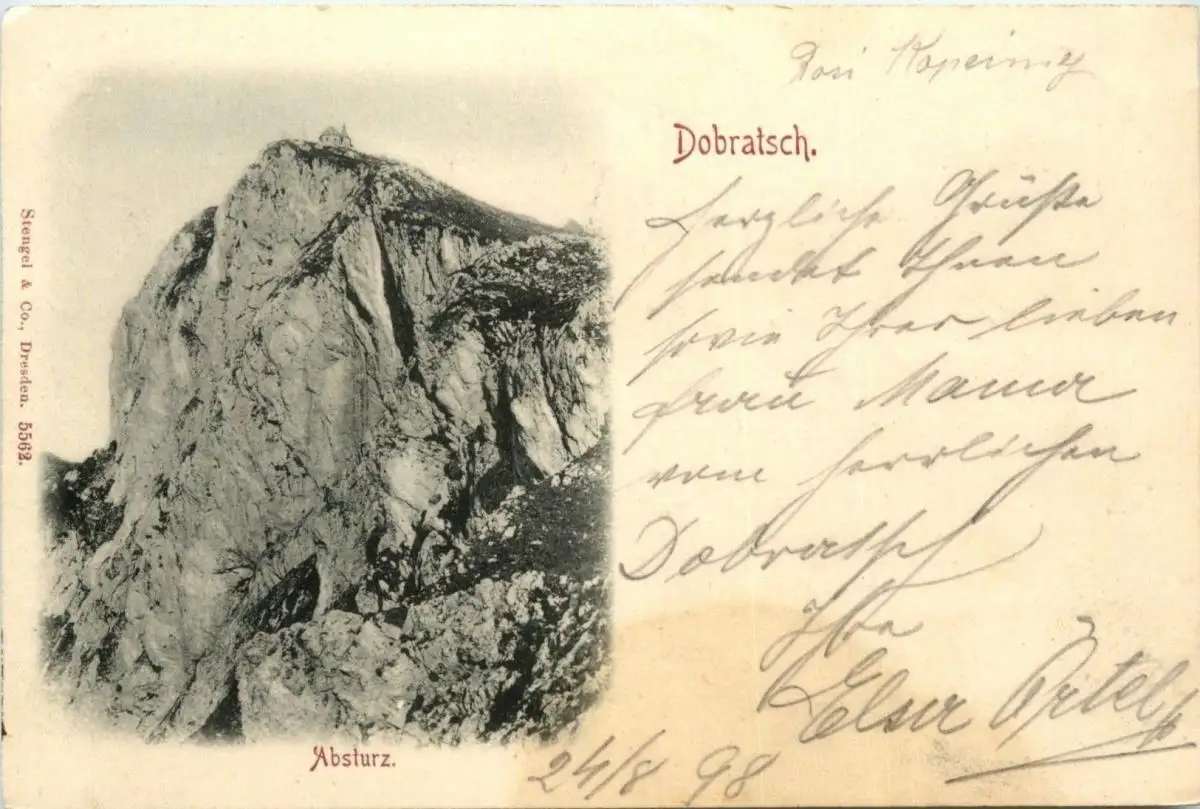 Rosi Kopeinig
Dobratsch.
Herzliche Grüße
sendet Ihnen
sowie Ihrer lieben
Frau Mama
vom herrlichen
Dobratsch
Ihre
Elsa Ortel
24/8 98
Absturz.
Stengel & Co., Dresden. 5562.